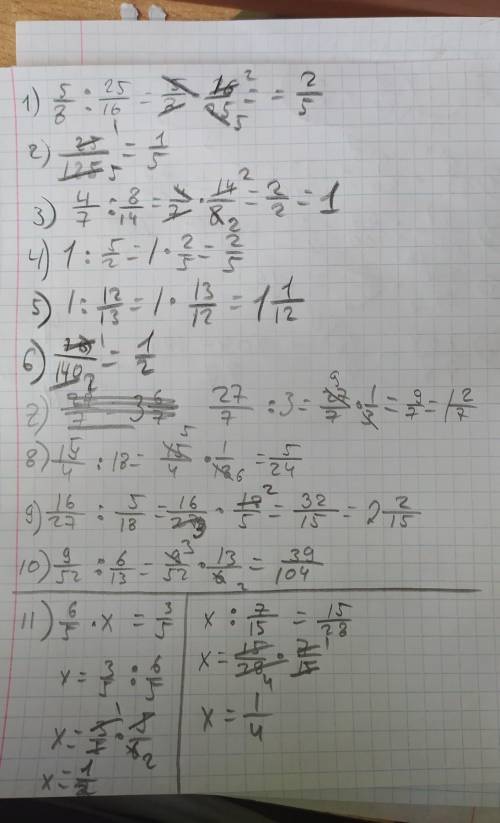 1) 5/8 : 25/16 = 5/8 · 16/25 2 5 = = 2/5
2) 25/125 1 5 = 1/5
3) 4/7 : 8/14 = 4/7 · 14/8 2 2 = 2/2 = 1
4) 1 : 5/2 = 1 · 2/5 = 2/5
5) 1 : 12/13 = 1 · 13/12 = 1 1/12
6) 70/140 1 2 = 1/2
7) 27/7 3 6/7 27/7 : 3 = 27/7 9 · 1/3 = 9/7 = 1 2/7
8) 15/4 : 18 = 15/4 5 · 1/18 6 = 5/24
9) 16/27 : 5/18 = 16/27 3 · 18/5 2 = 32/15 = 2 2/15
10) 9/52 : 6/13 = 9/52 3 · 13/6 2 = 39/104
11) 6/5 · x = 3/5
x = 3/5 : 6/5
x = 3/5 1 · 5/6 2
x = 1/2
x : 7/15 = 15/28
x = 15/28 4 · 7/15 1
x = 1/4